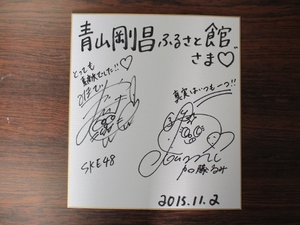 青山剛昌ふるさと館
さま♡
とっても
素敵でした!!♡
真実はいつも一つ!!
SKE48
加藤るみ
2015.11.2